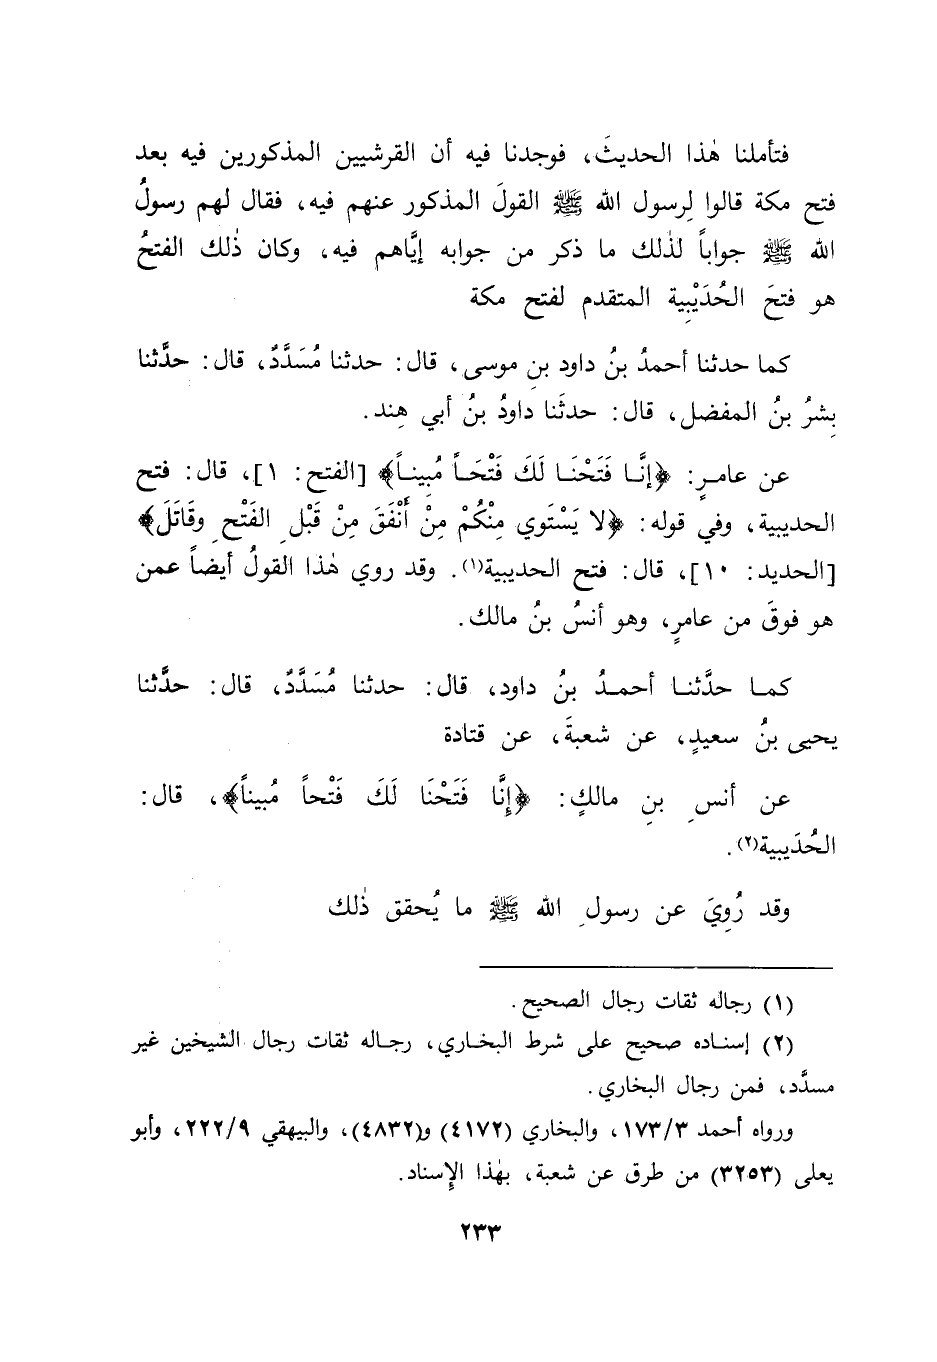 فتأملنا هٰذا الحديثَ، فوجدنا فيه أن القرشيين المذكورين فيه بعد
فتح مكة قالوا لِرسول الله ﷺ القولَ المذكور عنهم فيه، فقال لهم رسولُ
الله ﷺ جواباً لذٰلك ما ذكر من جوابه إيَّاهم فيه، وكان ذٰلك الفتحُ
هو فتحَ الحُدَيْبِية المتقدم لفتح مكة
كما حدثنا أحمدُ بنُ داود بنِ موسى، قال: حدثنا مُسَدَّدٌ، قال: حدَّثنا
بِشرُ بنُ المفضل، قال: حدثَنا داودُ بنُ أبي هِند.
عن عامرٍ: ﴿إنَّا فَتَحْنَا لَكَ فَتْحَاً مُبِيناً﴾ [الفتح: ١]، قال: فتح
الحديبية، وفي قوله: ﴿لا يَسْتَوي مِنْكُمْ مِنْ أَنْفَقَ مِنْ قَبْلِ الفَتْحِ وقَاتَلَ﴾
[الحديد: ١٠]، قال: فتح الحديبية(١). وقد روي هٰذا القولُ أيضاً عمن
هو فوقَ من عامرٍ، وهو أنسُ بنُ مالك.
كما حدَّثنا أحمدُ بنُ داود، قال: حدثنا مُسَدَّدٌ، قال: حدَّثنا
يحيى بنُ سعيدٍ، عن شعبةَ، عن قتادة
عن أنسِ بنِ مالكٍ: ﴿إِنَّا فَتَحْنَا لَكَ فَتْحاً مُبيناً﴾، قال:
الحُدَيبية(٢).
وقد رُوِيَ عن رسولِ الله ﷺ ما يُحقق ذٰلك
(١) رجاله ثقات رجال الصحيح.
(٢) إسناده صحيح على شرط البخاري، رجاله ثقات رجال الشيخين غير
مسدَّد، فمن رجال البخاري.
ورواه أحمد ١٧٣/٣، والبخاري (٤١٧٢) و(٤٨٣٢)، والبيهقي ٢٢٢/٩، وأبو
يعلى (٣٢٥٣) من طرق عن شعبة، بهٰذا الإِسناد.
٢٣٣